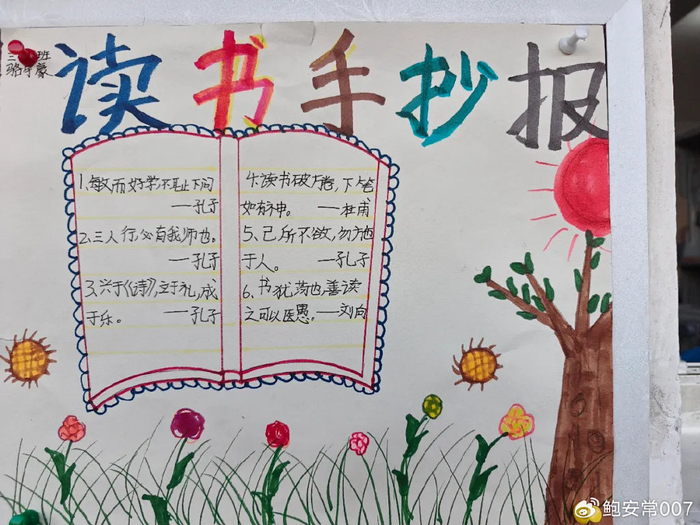 班
读书手抄报
1、敏而好学,不耻下问
——孔子
2、三人行,必有我师也。
——孔子
3、兴于《诗》,立于礼,成
于乐。 ——孔子
4、读书破万卷,下笔
如有神。 ——杜甫
5、己所不欲,勿施
于人。 ——孔子
6、书犹药也,善读
之可以医愚。——刘向
@鲍安常007